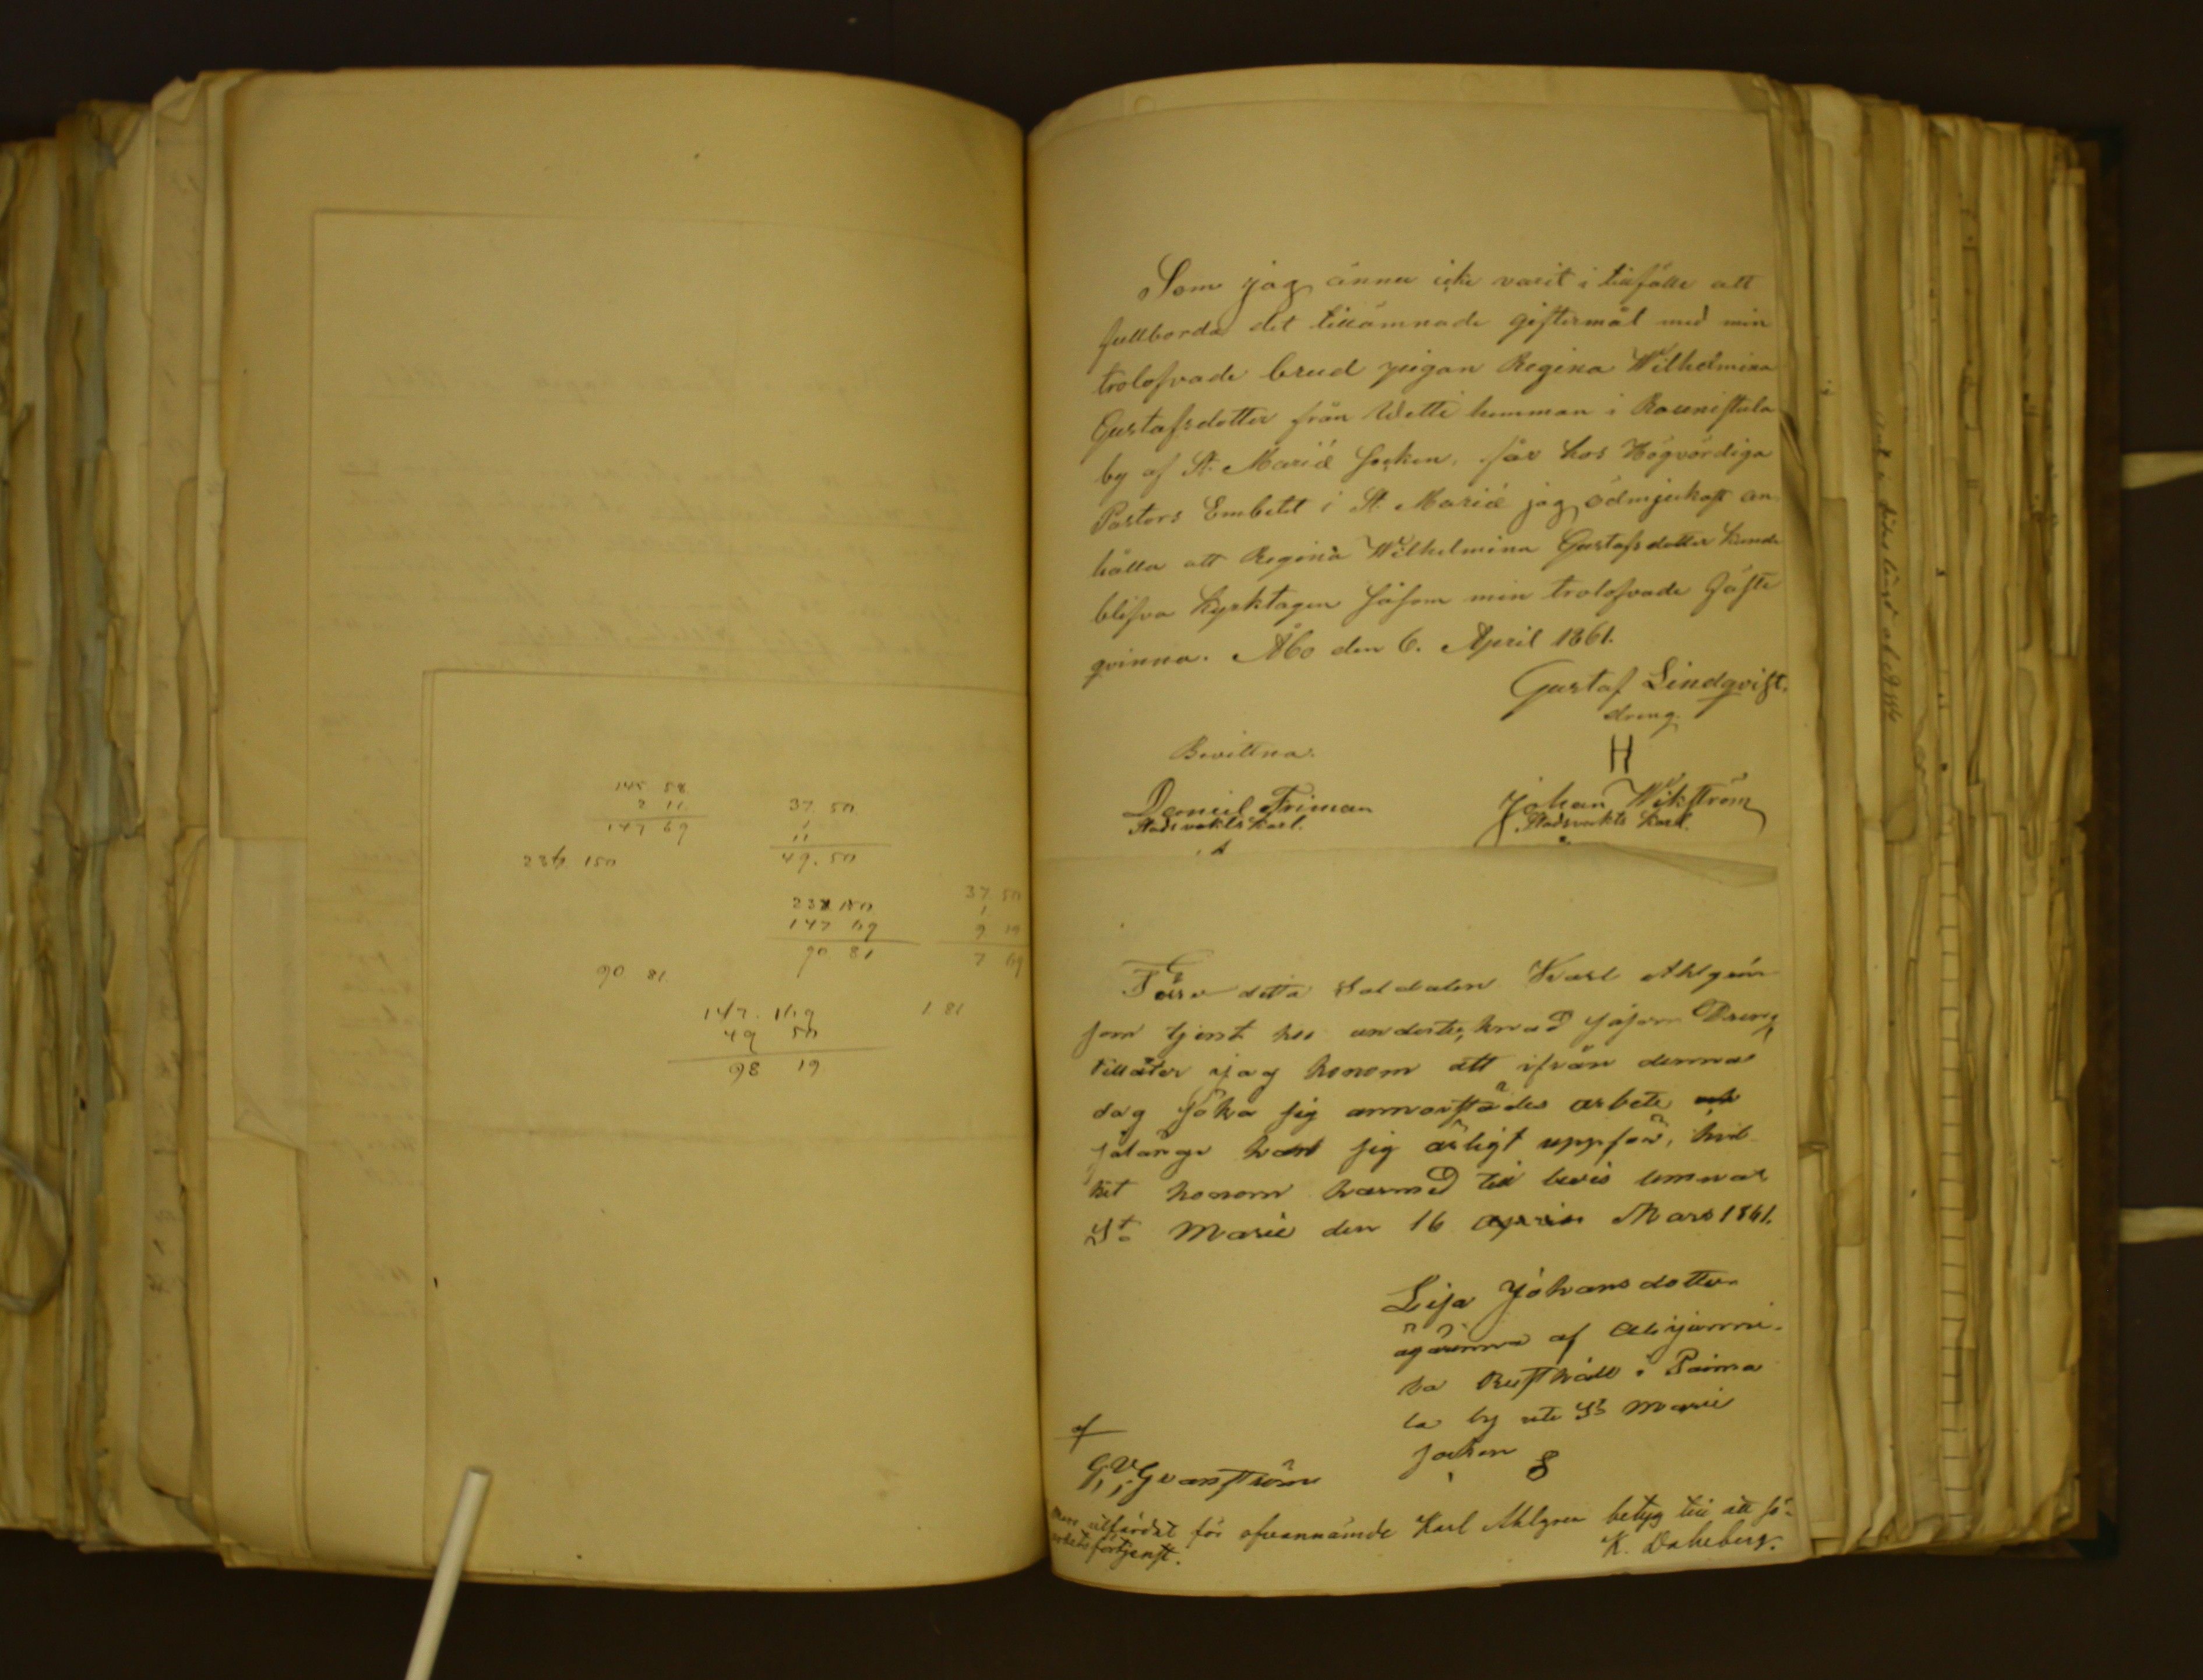 145 58
2 11
147 69
37. 50
1
11
49. 50
238. 150
238 150
147 69
90 81
37. 50
1
9 19
7 69
90 81
147. 169
49 50
98 19
1 81
Som jag ännu icke varit i tillfälle att
fullborda det tillämnade giftermål med min
trolofvade brud pigan Regina Wilhelmina
Gustafsdotter från Wetti hemman i Raunistula
by af St. Mariæ socken, får hos Högvördiga
Pastors Embetet i St. Mariæ jag ödmjukast an-
hålla att Regina Wilhelmina Gustafsdotter kunde
blifva kyrktagen såsom min trolofvade Fäste
qvinna. Åbo den 6. April 1861.
Gustaf Lindqvist.
dreng.
Bevittna:
H
Daniel Friman
Stadsvaktskarl.
Johan Wikström
Stadsvakts karl.
Förre detta Soldaten Karl Ahlgrén
som tjent hos undertecknad såsom Dreng
tillåter jag honom att ifrån denna
dag söka sig annorstädes arbete och
sålänge han sig ärligt uppför, hvil-
ket honom härmed till bevis lemnas
St Marie den 16 April Mars 1861.
Lisa Johansdotter
ägarinna af Alijänni-
la Rusthåll i Paima
la by uti St Marie
socken
af
G. V. Granström
Mars utfärdat för ofvannämde Karl Ahlgren betyg till att sö-
arbetsförtjenst.
K. Dahlberg.